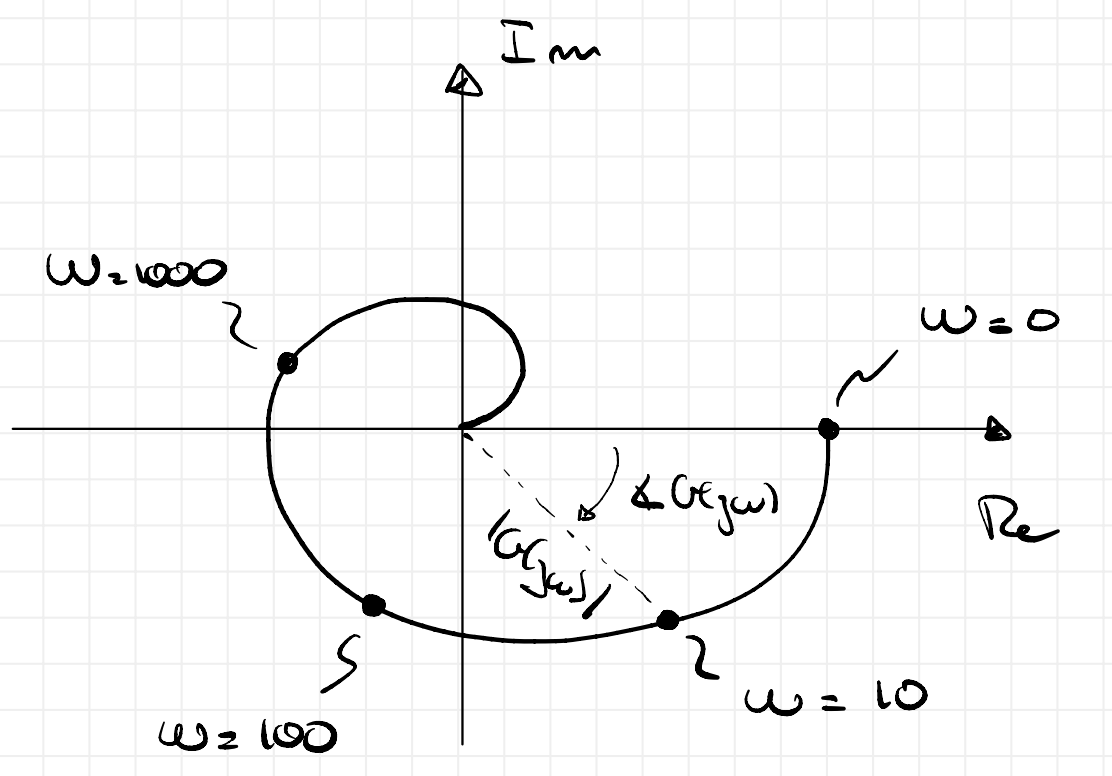 Im
ω=1000
ω=0
∡G(jω)
Re
|G(jω)|
ω=10
ω=100